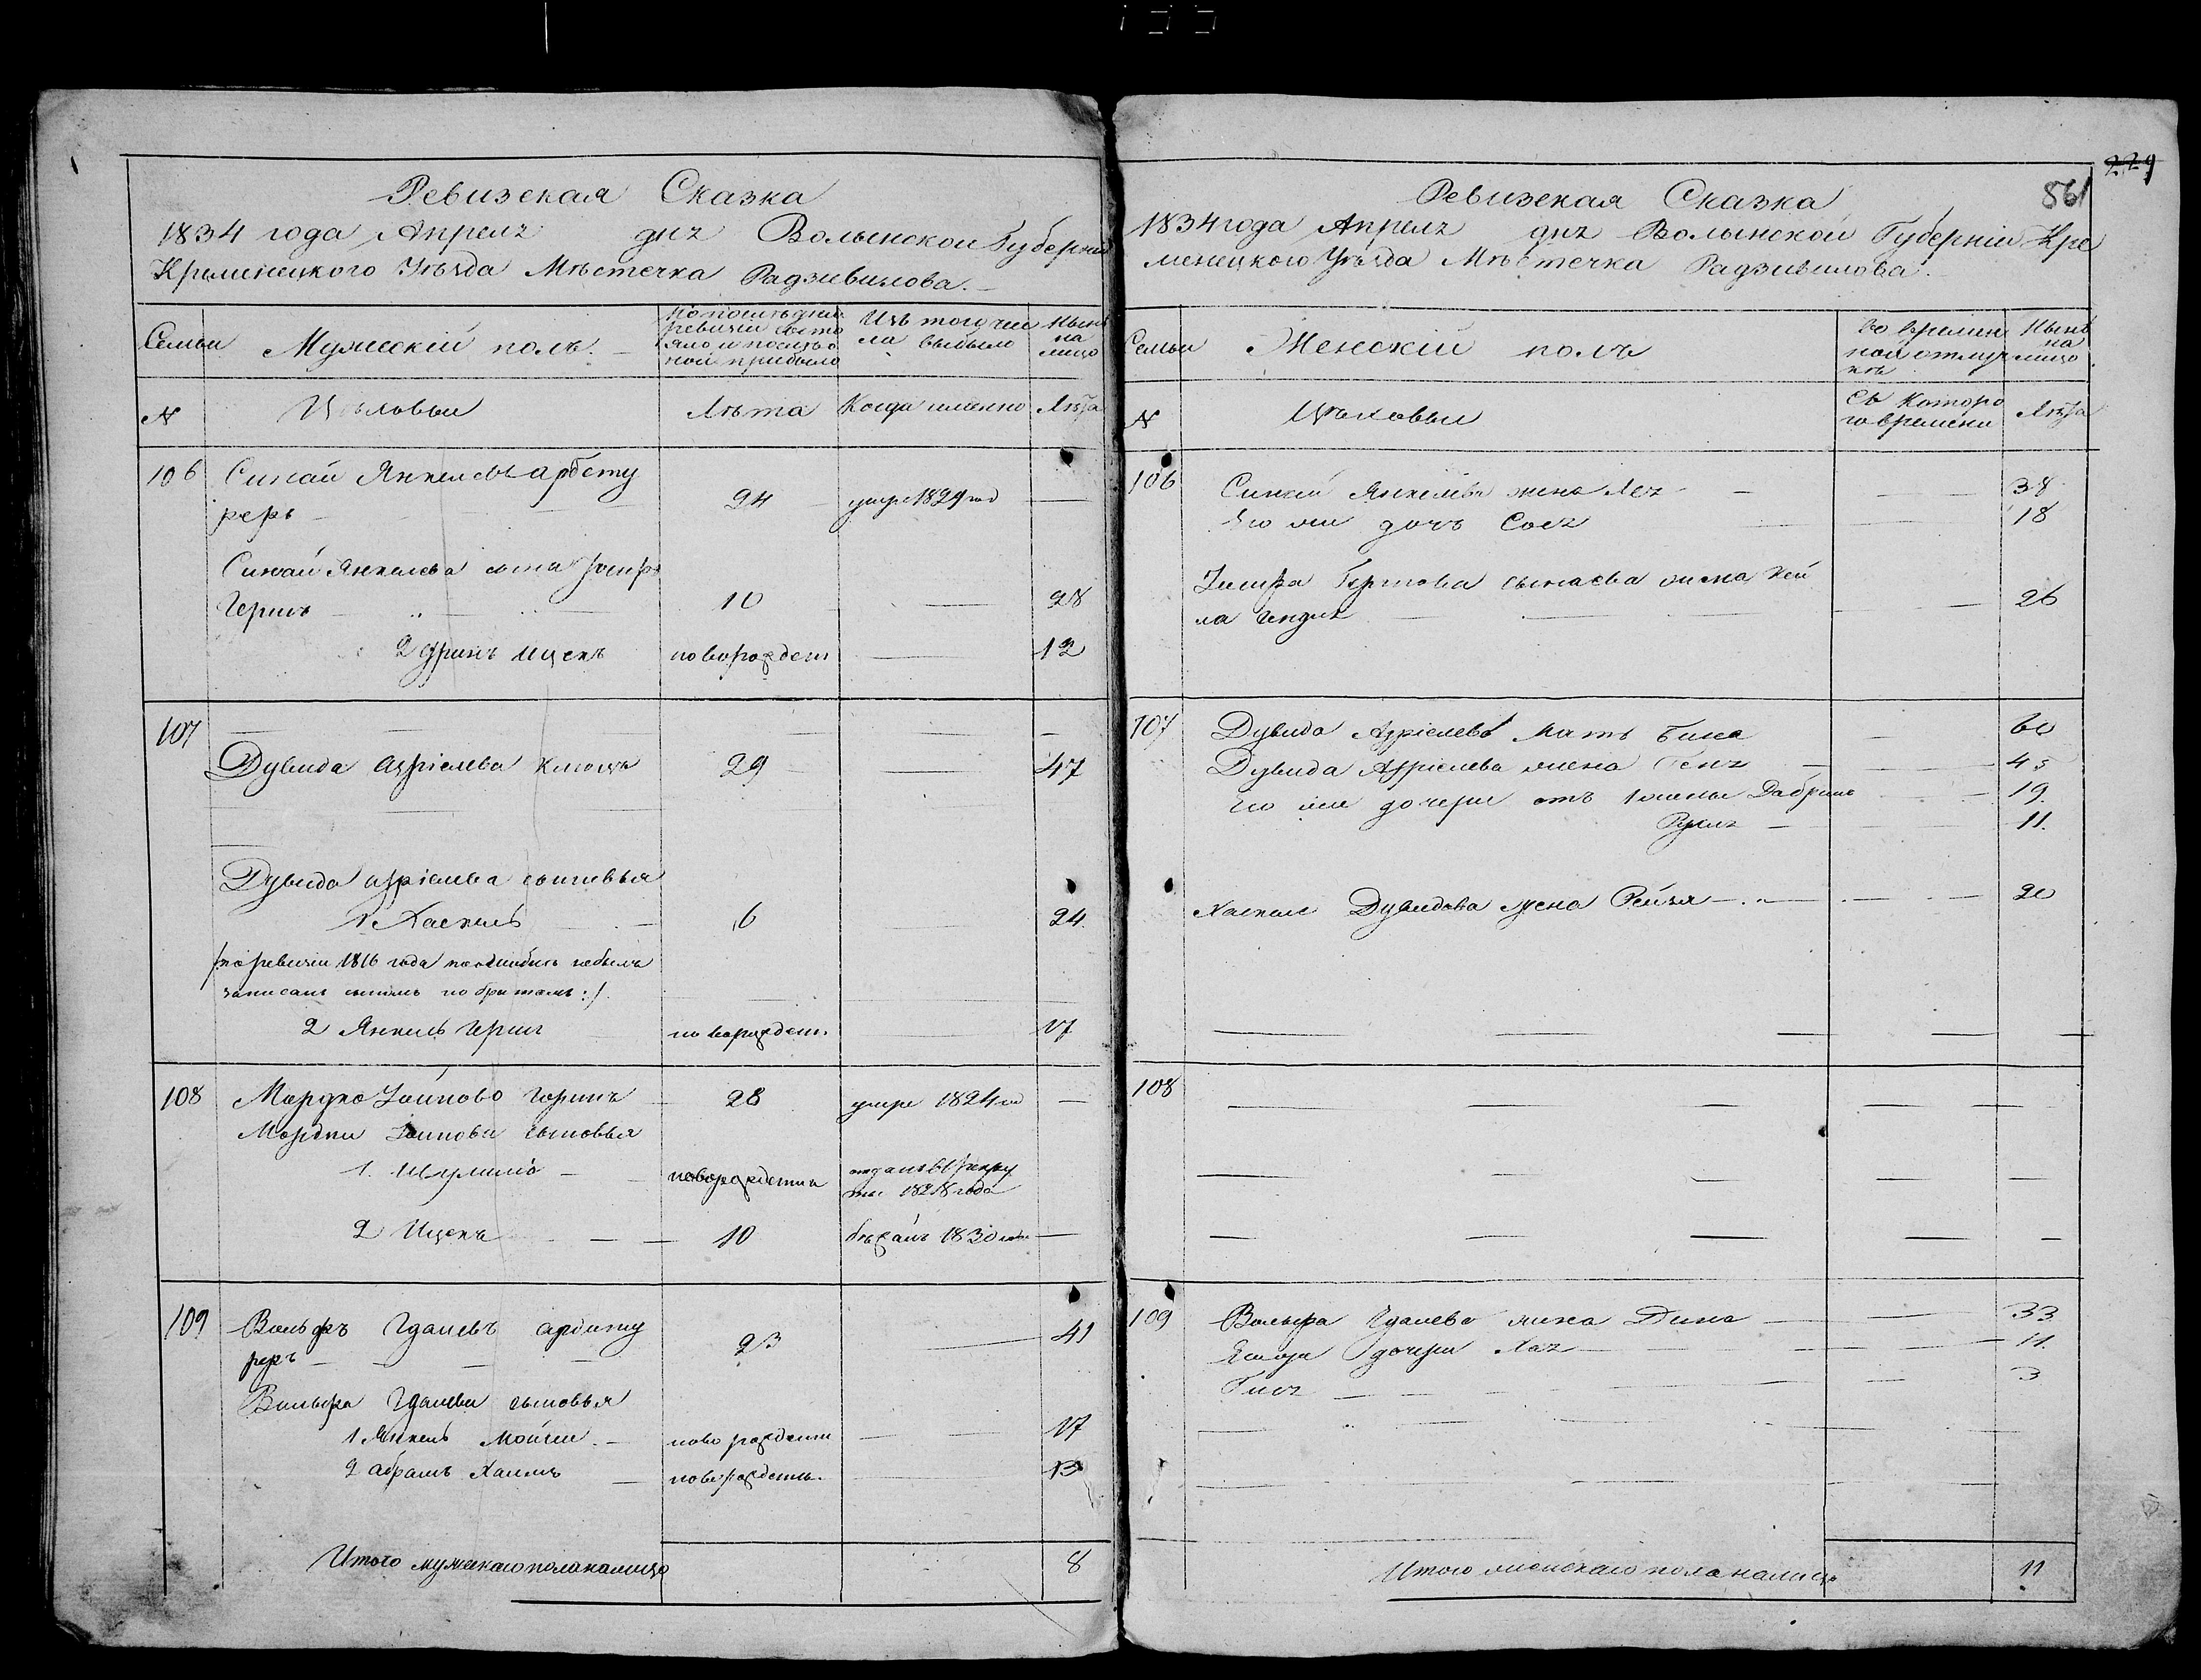 Ревизская Сказка
1834 года Апреля дня Волынской Губерніи
Кременецкого Уѣзда Мѣстечка Радзивилова.
Семьи
Мужескій полъ.
По послѣдней
ревизіи состо
яло и послѣ о
ной прибыло
Изъ того чис
ла выбыло
Нынѣ
на
лицо
№
Цѣховыи
Лѣта
Когда имянно
Лѣта
106 Синай Янкелевъ арбету
реръ 24 умре 1829 год
Синай Янкелева сына
Гершъ 10 28
2 Ицекъ новорожден 12
107
Дувида Азріелева 29 47
Дувида Азріелева сыновья
1 Хаскель 6 24
по ревизіи 1816 года по ошибкѣ небылъ
записанъ
2 Янкель Герш новорожден. 17
108 Мордко Гершъ 28 умре 1824 год
Мордки сыновья
1. Шулимъ новорожденны отданъ въ рекру
ты 1828 года
2 Ицекъ 10 бѣжалъ 1830
109 Вольфъ Гдалевъ арбету
реръ 23 41
Вольфа Гдалева сыновья
1 Янкель Мойше новорожденн 17
2 абрамъ Хаимъ новорожденн. 13
Итого мужескаго пола налицо 8
229
861
Ревизская Сказка
1834 года Апреля дня Волынской Губерніи Кре
менецкого Уѣзда Мѣстечка Радзивилова.
Семьи
Женскій полъ
Во времен
ной отлуч
кѣ
Нынѣ
на
лицо
№
Цѣховыи
Съ Которо
го времени
Лѣта
106 Синай Янкелева жена Лея 38
Его же дочь Сося 18
Гершова Сынаева жена Кей
ла Гендля 26
107 Дувида Азріелева Мать Бина 60
Дувида Азріелева жена Геня 45
Его же дочери отъ 1 жены Добрыш 19.
Рухля 11.
Хаскеля Дувидова жена Рейзя 20
108
109 Вольфа Гдалева жена Дина 33
Его же дочери Хая 11.
Гися 3
Итого женскаго пола налицо 11